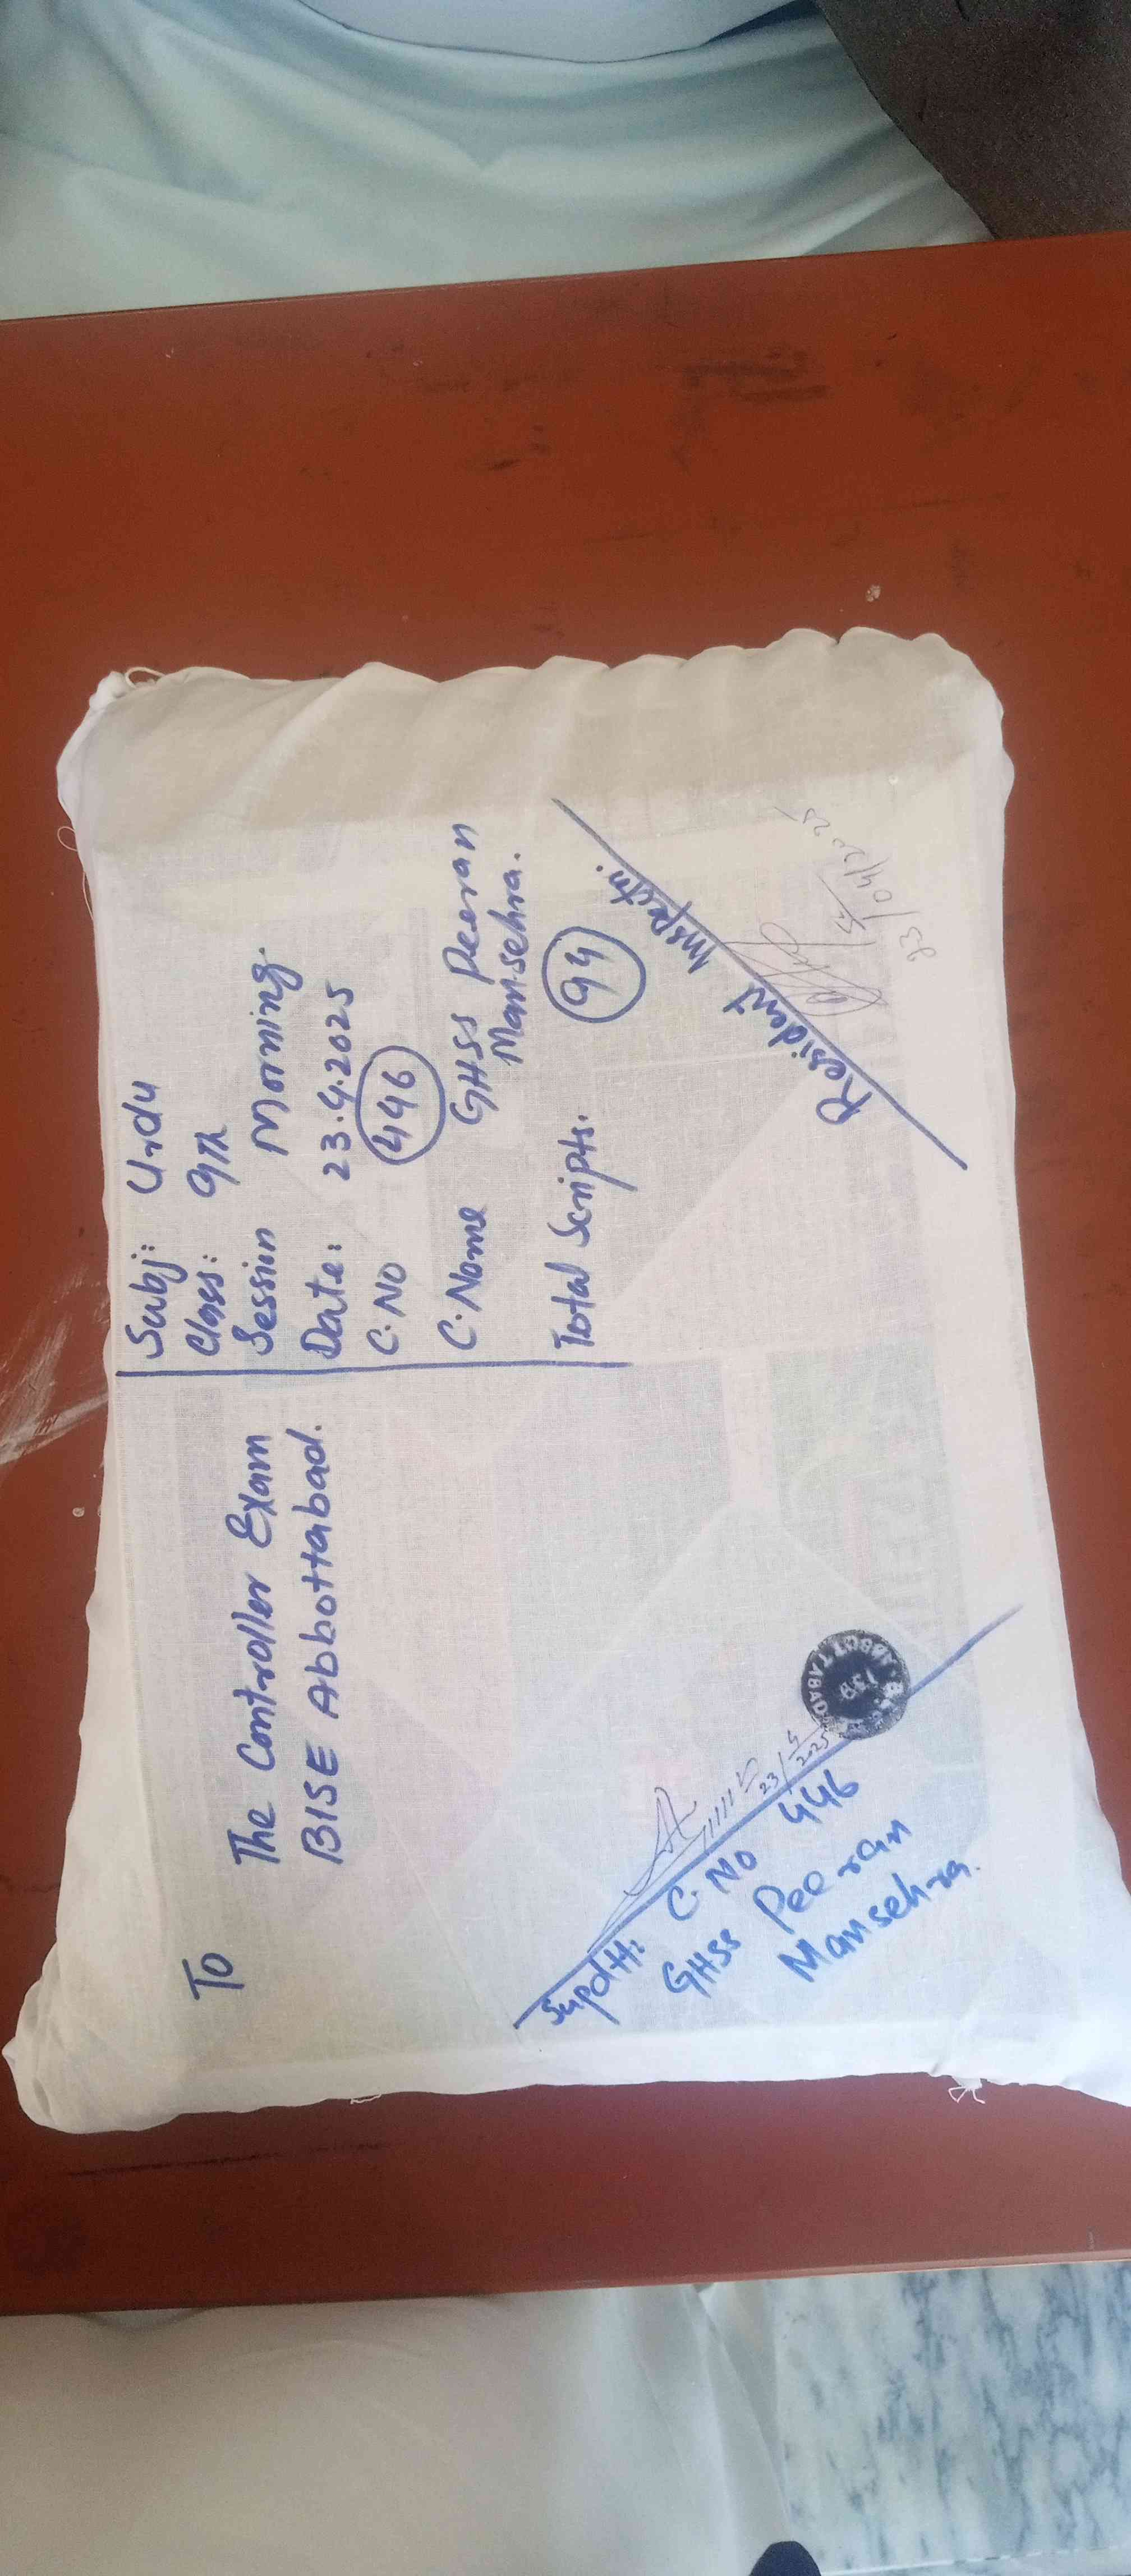 To
The Controller Exam
BISE Abbottabad.
Subj: Urdu
Class: 9th
Session Morning.
Date: 23.4.2025
C.No 446
C.Name GHSS Peeran
Mansehra.
Total Scripts. 94
Supdtt:
23/4
2025
C.No 446
GHSS Peeran
Mansehra.
ABBOTTABAD
139
Resident Inspector.
23/04/2025